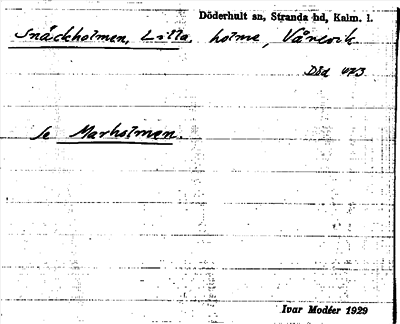 Döderhult sn, Stranda hd, Kalm. l.
Snäckholmen, Lilla, holme, Vånevik
Död 473
se Marholmen.
Ivar Modéer 1929